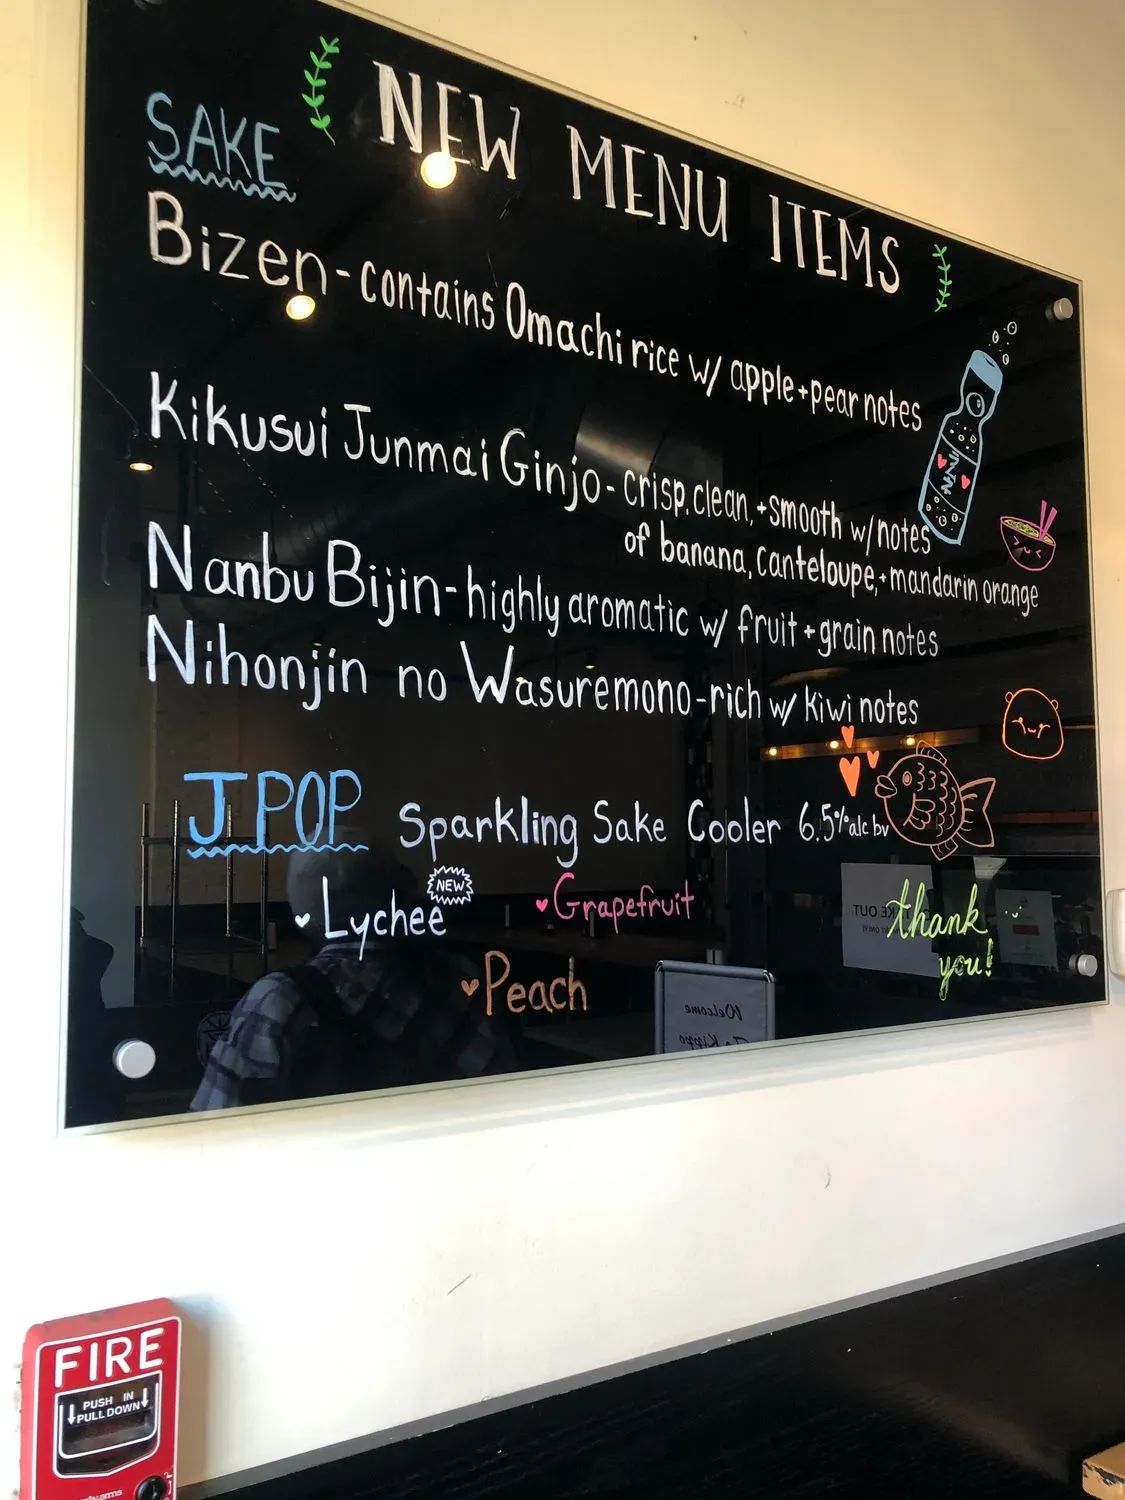 NEW MENU ITEMS
SAKE
Bizen - contains Omachi rice w/ apple + pear notes
Kikusui Junmai Ginjo - crisp, clean, + smooth w/ notes
of banana, canteloupe, + mandarin orange
Nanbu Bijin - highly aromatic w/ fruit + grain notes
Nihonjin no Wasuremono - rich w/ kiwi notes
J POP Sparkling Sake Cooler 6.5% alc bv
Lychee NEW
Grapefruit
Peach
thank
you!
TAKE OUT
Welcome
To Kippo
FIRE
PUSH IN
PULL DOWN